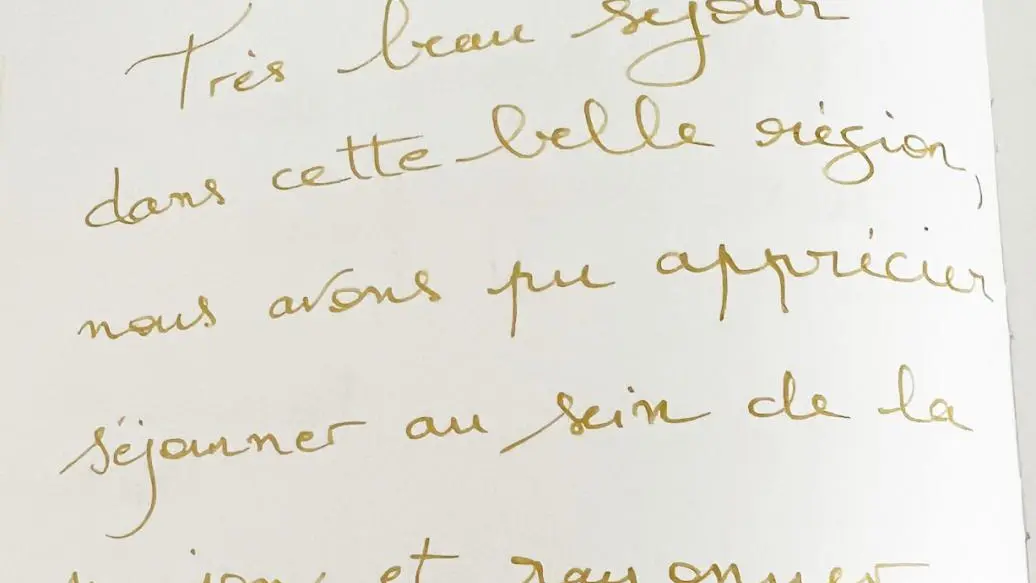 Très beau séjour
dans cette belle région,
nous avons pu apprécier
séjourner au sein de la
et rayonner